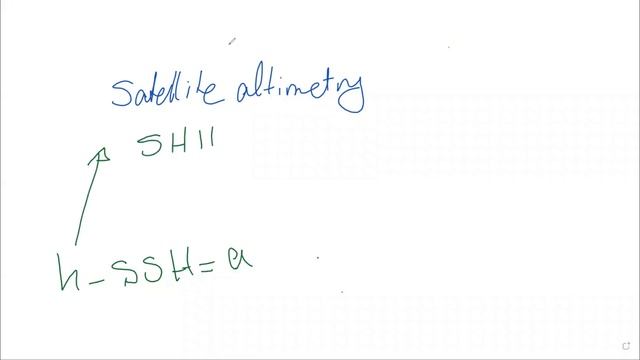 Satellite altimetry
SH11
h - SSH = a